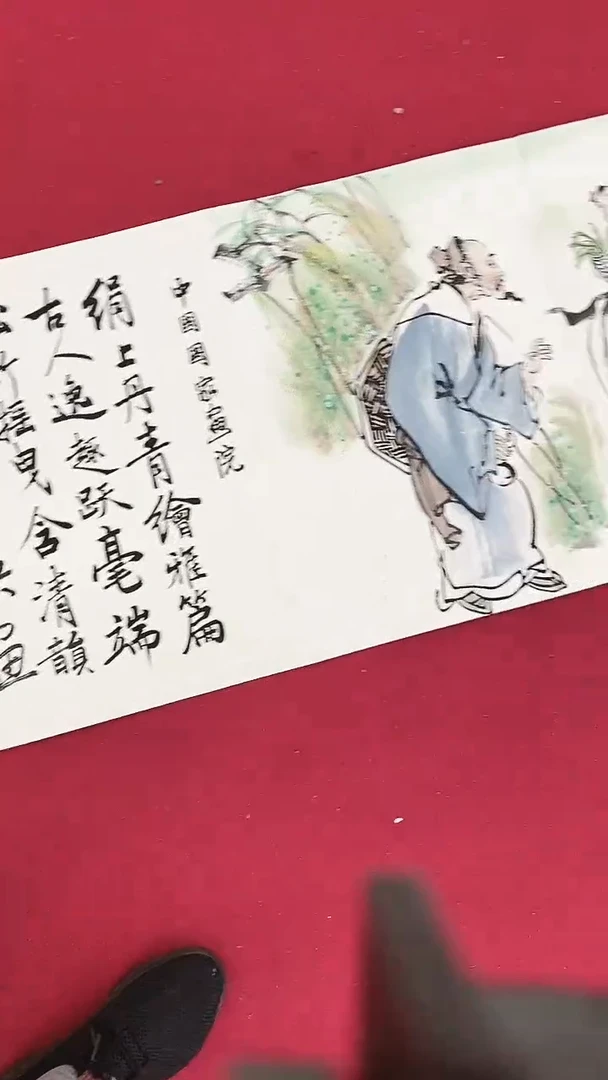 中国国家画院
绢上丹青繪雅篇
古人逸趣跃毫端
竹摇曳含清韻